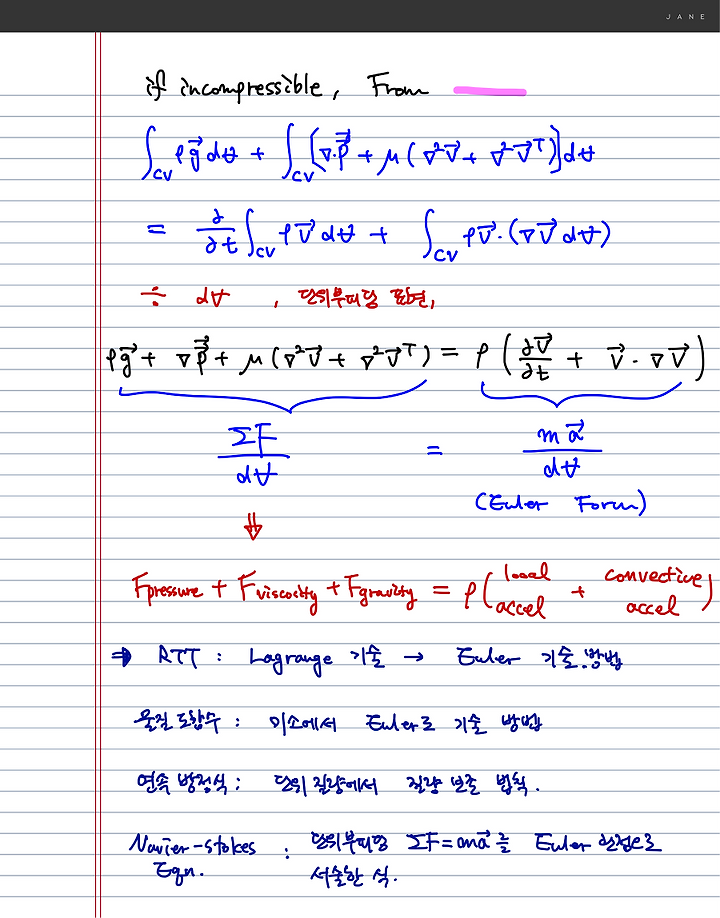 JANE
if incompressible, From
∫_CV ρg⃗ dV̶ + ∫_CV [∇·P⃗ + μ(∇²V⃗ + ∇²V⃗ᵀ)] dV̶
= ∂/∂t ∫_CV ρV⃗ dV̶ + ∫_CV ρV⃗·(∇V⃗ dV̶)
÷ dV̶ , 단위부피당 표현,
ρg⃗ + ∇P⃗ + μ(∇²V⃗ + ∇²V⃗ᵀ) = ρ(∂V⃗/∂t + V⃗·∇V⃗)
ΣF/dV̶ = ma⃗/dV̶
(Euler Form)
⇓
Fpressure + Fviscosity + Fgravity = ρ(local accel + convective accel)
⇒ RTT : Lagrange 기술 → Euler 기술 방법
물질 도함수 : 미소에서 Euler로 기술 방법
연속 방정식 : 단위 질량에서 질량 보존 법칙.
Navier-stokes Eqn. : 단위부피당 ΣF=ma⃗를 Euler 관점으로
서술한 식.